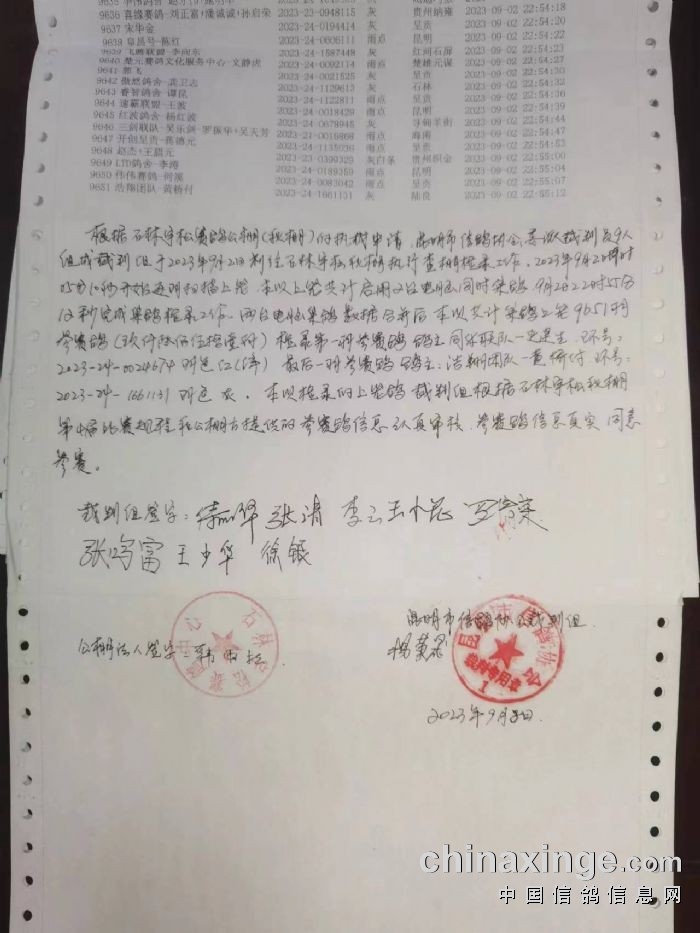 9636 喜缘赛鸽-刘正富+潘诚诚+孙启荣 2023-23-0948115 灰 贵州纳雍 2023-09-02 22:54:18
9637 宋华金 2023-24-0194414 灰 呈贡 2023-09-02 22:54:20
9638 阜昌号-陈红 2023-24-0606111 雨点 昆明 2023-09-02 22:54:23
9639 飞腾联盟-李向东 2023-24-1587448 灰 红河石屏 2023-09-02 22:54:24
9640 楚元赛鸽文化服务中心-文静虎 2023-24-0092114 雨点 楚雄元谋 2023-09-02 22:54:27
9641 郭飞 2023-24-0021525 灰 呈贡 2023-09-02 22:54:30
9642 傲然鸽舍-龚卫志 2023-24-1129613 灰 石林 2023-09-02 22:54:32
9643 睿智鸽舍-谭昆 2023-24-1122811 雨点 呈贡 2023-09-02 22:54:36
9644 速霸联盟-王波 2023-24-0018429 雨点 昆明 2023-09-02 22:54:39
9645 红波鸽舍-杨红波 2023-24-0678945 灰 寻甸羊街 2023-09-02 22:54:44
9646 三剑联队-吴乐剑+罗振华+吴天芳 2023-21-0016868 雨点 海南 2023-09-02 22:54:47
9647 开创呈贡-蒋德元 2023-24-1135036 雨点 呈贡 2023-09-02 22:54:53
9648 赵杰+王腊元 2023-23-0399329 灰白条 贵州织金 2023-09-02 22:55:00
9649 LTD鸽舍-李涛 2023-24-0189359 雨点 昆明 2023-09-02 22:55:04
9650 伟伟赛鸽-何溪 2023-24-0083042 雨点 呈贡 2023-09-02 22:55:07
9651 浩翔团队-黄杨付 2023-24-1661131 灰 陆良 2023-09-02 22:55:12
根据石林宇松赛鸽公棚(秋棚)的执裁申请,昆明市信鸽协会委派裁判员9人
组成裁判组于2023年9月2日到石林宇松秋棚执行查棚检录工作。2023年9月2日
开始扫描上笼,本次上笼共计启用2台电脑同时集鸽,9月2日22时55分
12秒完成集鸽检录工作。两台电脑集鸽数据合并后本次共计集鸽上笼9651羽
参赛鸽(玖仟陆佰伍拾壹羽)检录第一羽参赛鸽 鸽主 环号:
2023-24-0024674 羽色 最后一羽参赛鸽鸽主:浩翔团队-黄杨付 环号:
2023-24-1661131 羽色灰。本次检录的上笼鸽裁判组根据石林宇松秋棚
第 届比赛规程和公棚方提供的参赛鸽信息认真审核,参赛鸽信息真实同意
参赛。
裁判组签字: 张清 李云
张鸣富 王少华 徐锟
昆明市信鸽协会裁判组
公棚法人签字:韩雨松
裁判专用章
1
2023年9月2日
chinaxinge.com
中国信鸽信息网